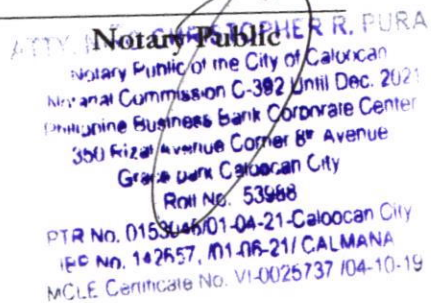 ATTY. CHRISTOPHER R. PURA
Notary Public
Notary Public of the City of Caloocan
Notarial Commission C-392 Until Dec. 2021
Philippine Business Bank Corporate Center
350 Rizal Avenue Corner 8th Avenue
Grace park Caloocan City
Roll No. 53988
PTR No. /01-04-21-Caloocan City
IBP No. 142657, /01-06-21/ CALMANA
MCLE Certificate No. VI-0025737 /04-10-19